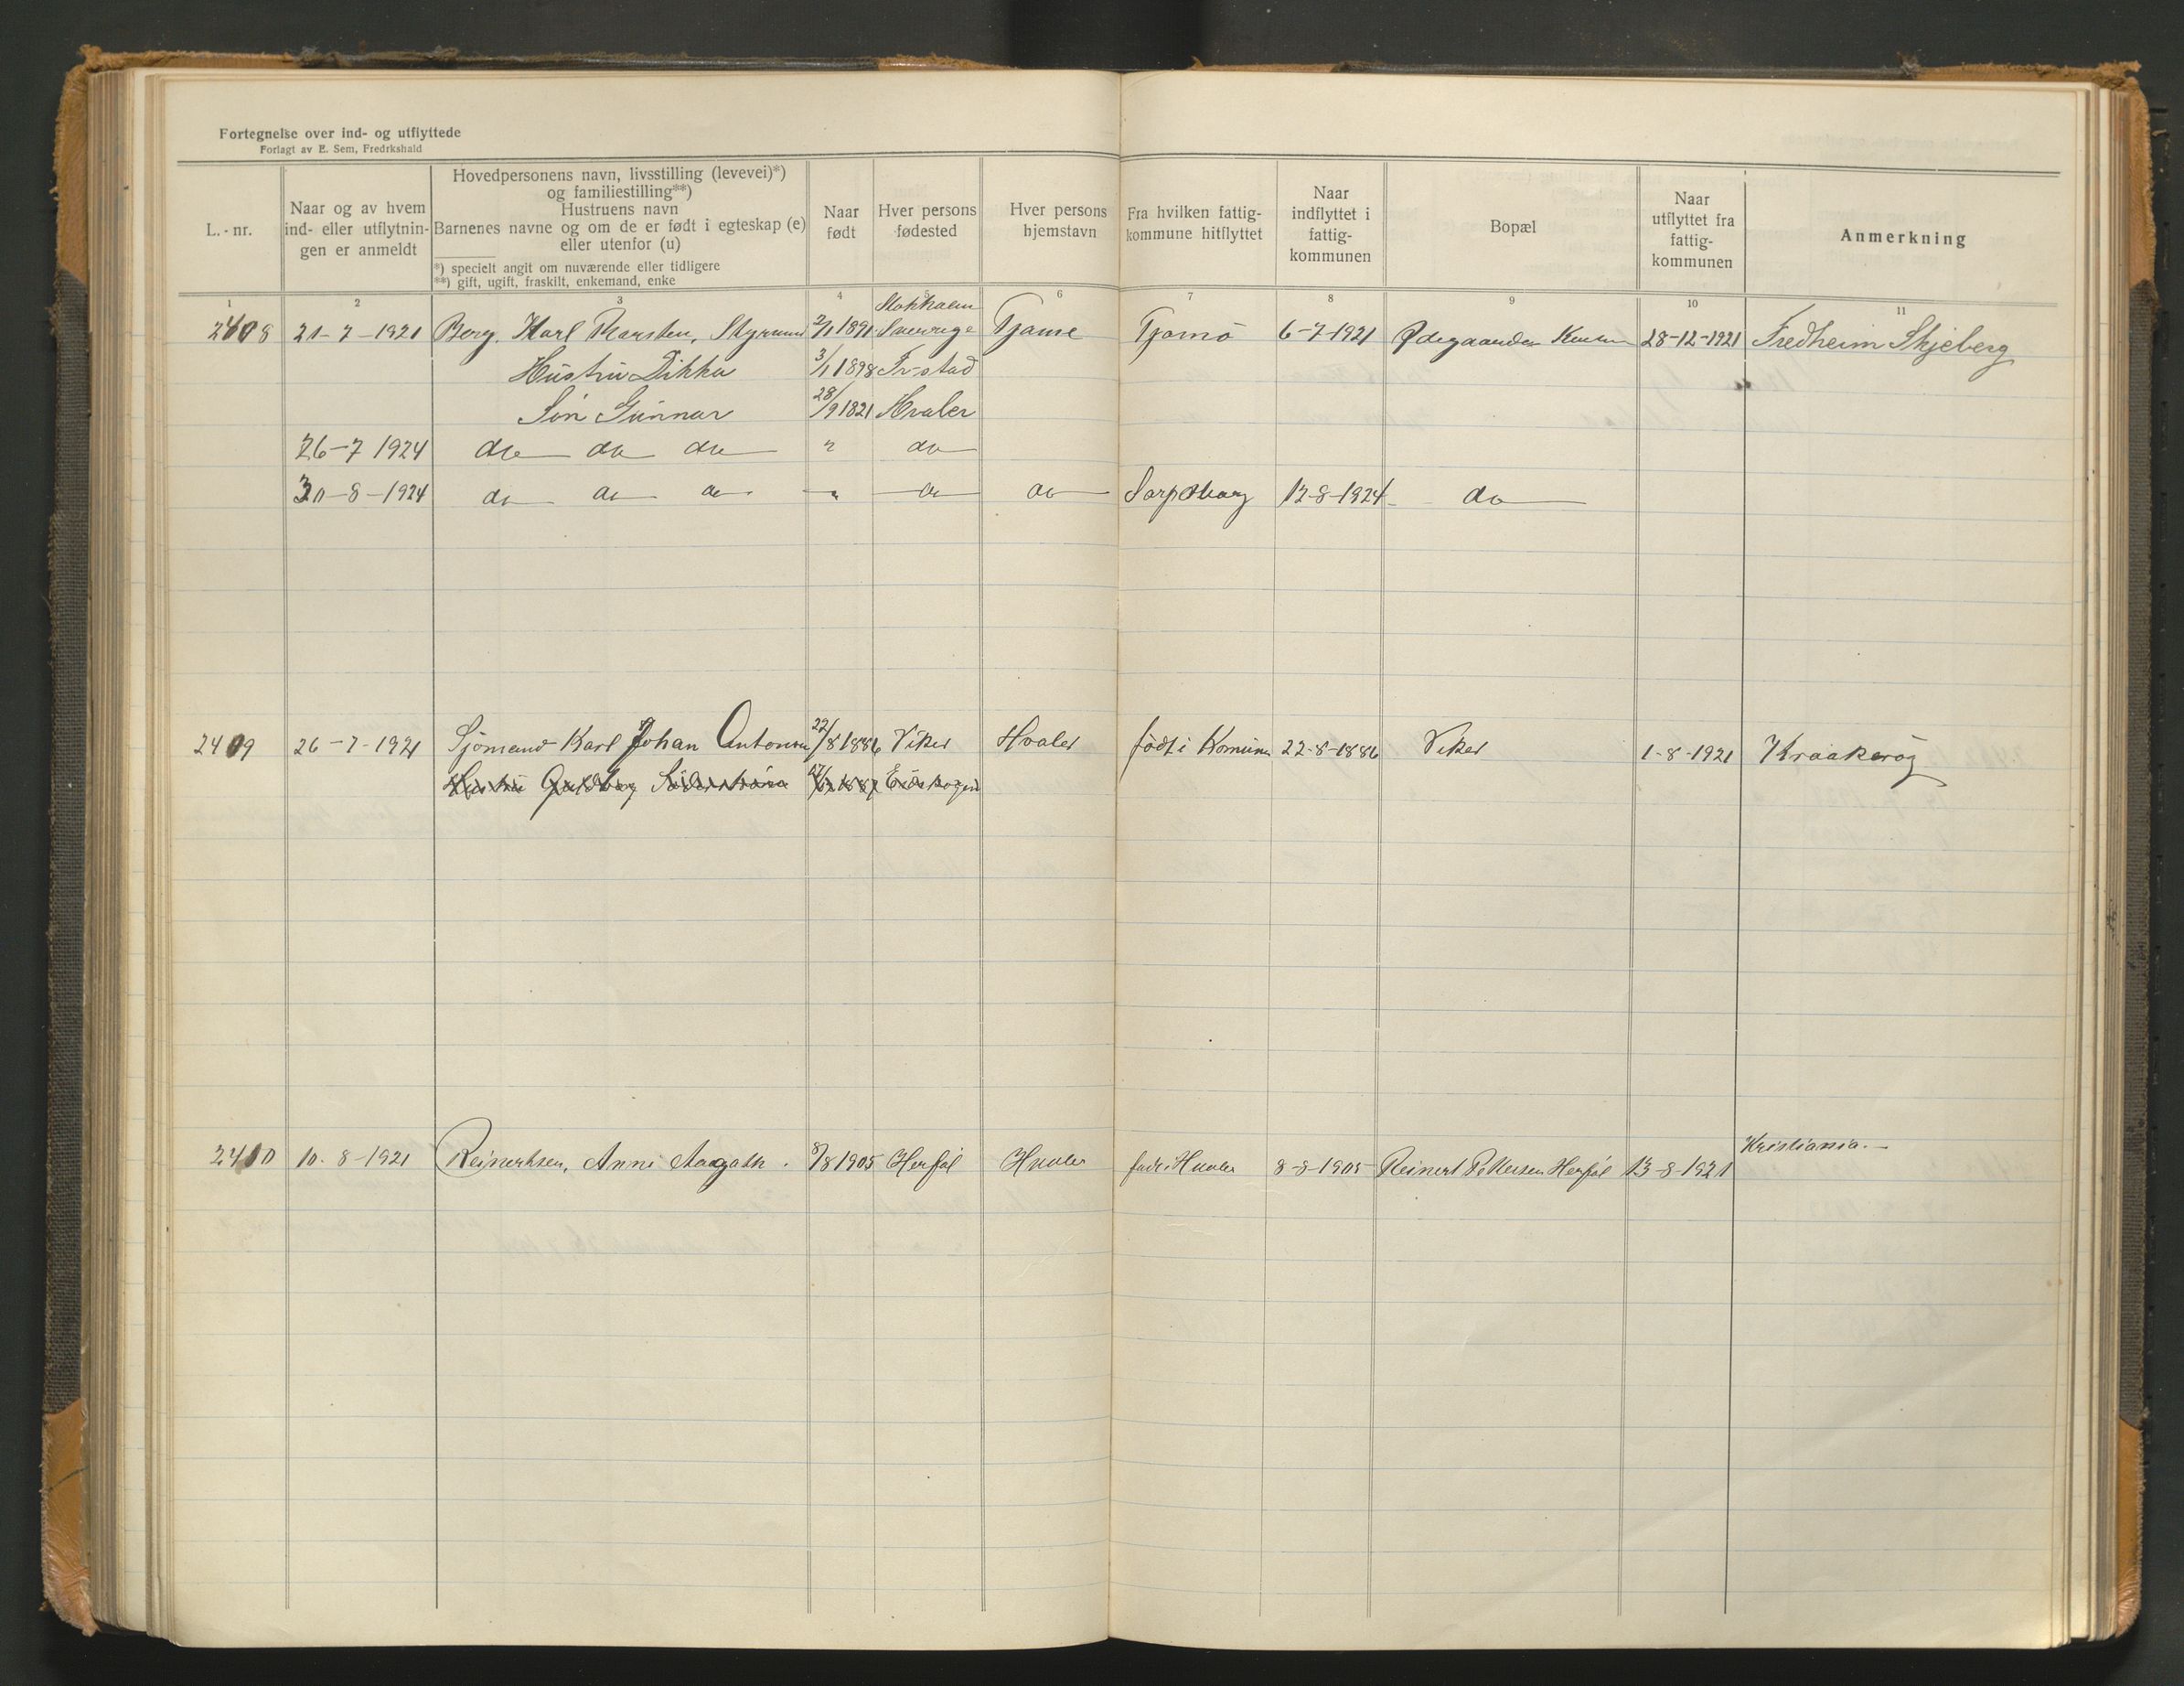 Fortegnelse over ind- og utflyttede
Forlagt av E. Sem, Fredrkshald
L.-nr.
Naar og av hvem ind- eller utflytnin-gen er anmeldt
Hovedpersonens navn, livsstilling (levevei)*)
og familiestilling**)
Hustruens navn
Barnenes navne og om de er født i egteskap (e)
eller utenfor (u)
*) specielt angit om nuværende eller tidligere
**) gift, ugift, fraskilt, enkemand, enke
Naar født
Hver persons fødested
Hver persons hjemstavn
Fra hvilken fattig-kommune hitflyttet
Naar indflyttet i fattig-kommunen
Bopæl
Naar utflyttet fra fattig-kommunen
Anmerkning
1 2 3 4 5 6 7 8 9 10 11
Stokholm
2408 21-7-1921 Berg, Karl Karsten, Styrmand 2/1 1891 Sverrige Tjøme Tjømö 6-7-1921 Ødegaarden 28-12-1921 Fredheim Skjeberg
Hustru Dikka 3/1 1898 Fr-stad
Sön Gunnar 28/9 1821 Hvaler
26-7 1924 do do do " do
30-8-1924 do do do " do do Sarpsborg 12-8-1924 do
2409 26-7-1921 Sjömand Karl Johan Antonsen 22/8 1886 Viker Hvaler födt i Komunen 22-8-1886 Viker 1-8-1921 Kraakeröy
Hustru Eidskogen
Kristiania.-
2410 10-8-1921 Reinertsen, Anni Aagath. 8/8 1905 Herföl Hvaler föd i Hvaler 8-8-1905 Reinert Pettersen Herföl 13-8-1921